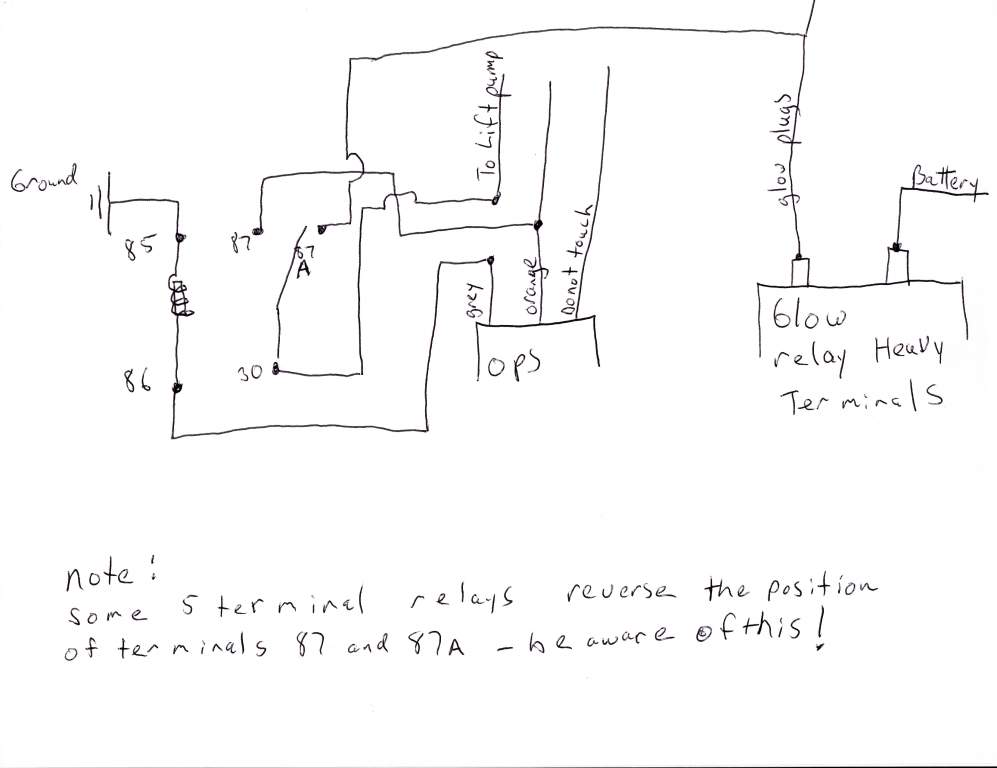 To Lift pump
glow plugs
Ground
Battery
85
87
87
A
Do not touch
orange
grey
86
30
OPS
Glow
relay Heavy
Terminals
note!
some 5 terminal relays reverse the position
of terminals 87 and 87A - be aware of this!